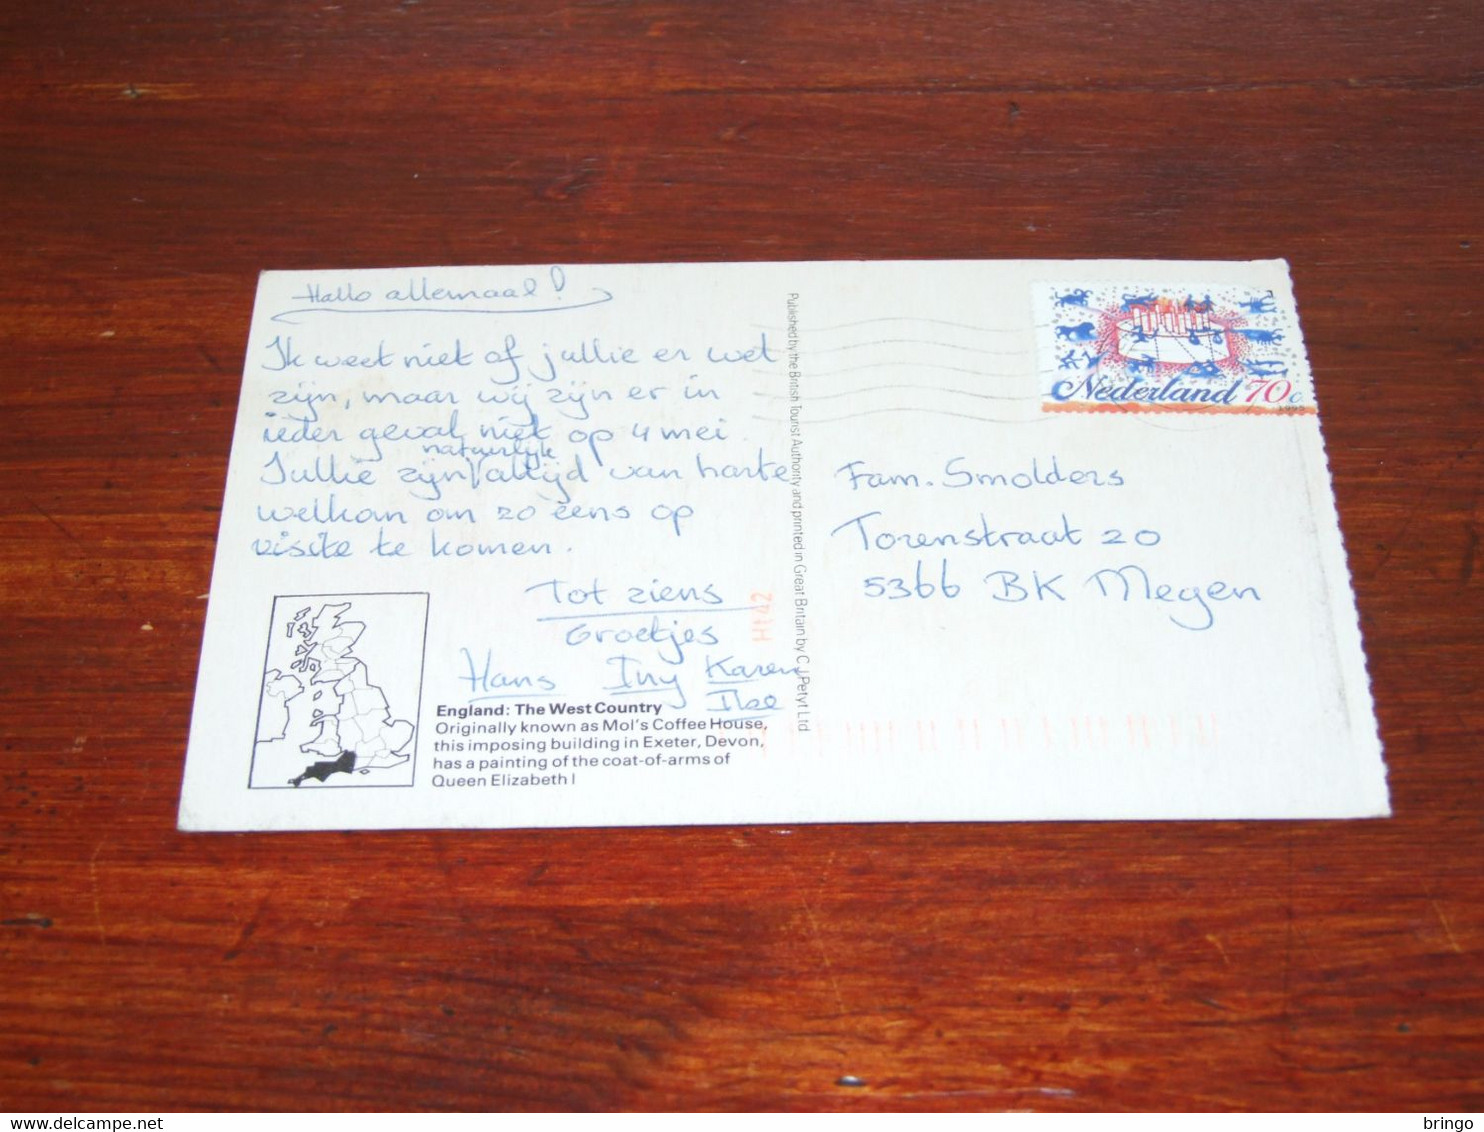 Hallo allemaal!
Ik weet niet of jullie er wel
zijn, maar wij zijn er in
ieder geval niet op 4 mei.
natuurlijk
Jullie zijn altijd van harte
welkom om zo eens op
visite te komen.
Tot ziens
Groetjes
Hans Iny Karen
Ilse
England: The West Country
Originally known as Mol's Coffee House,
this imposing building in Exeter, Devon,
has a painting of the coat-of-arms of
Queen Elizabeth I
Published by the British Tourist Authority and printed in Great Britain by C J Petyt Ltd
H142
Nederland 70c
1995
Fam. Smolders
Torenstraat 20
5366 BK Megen
www.delcampe.net
bringo